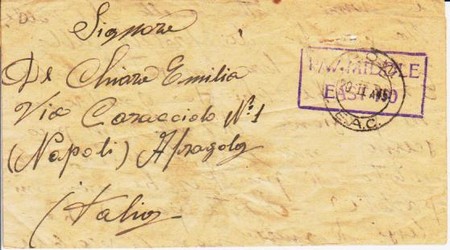 Signore
De Chiara Emilia
Via Caracciolo Nº1
(Napoli) Afragola
Italia
E.A.C.